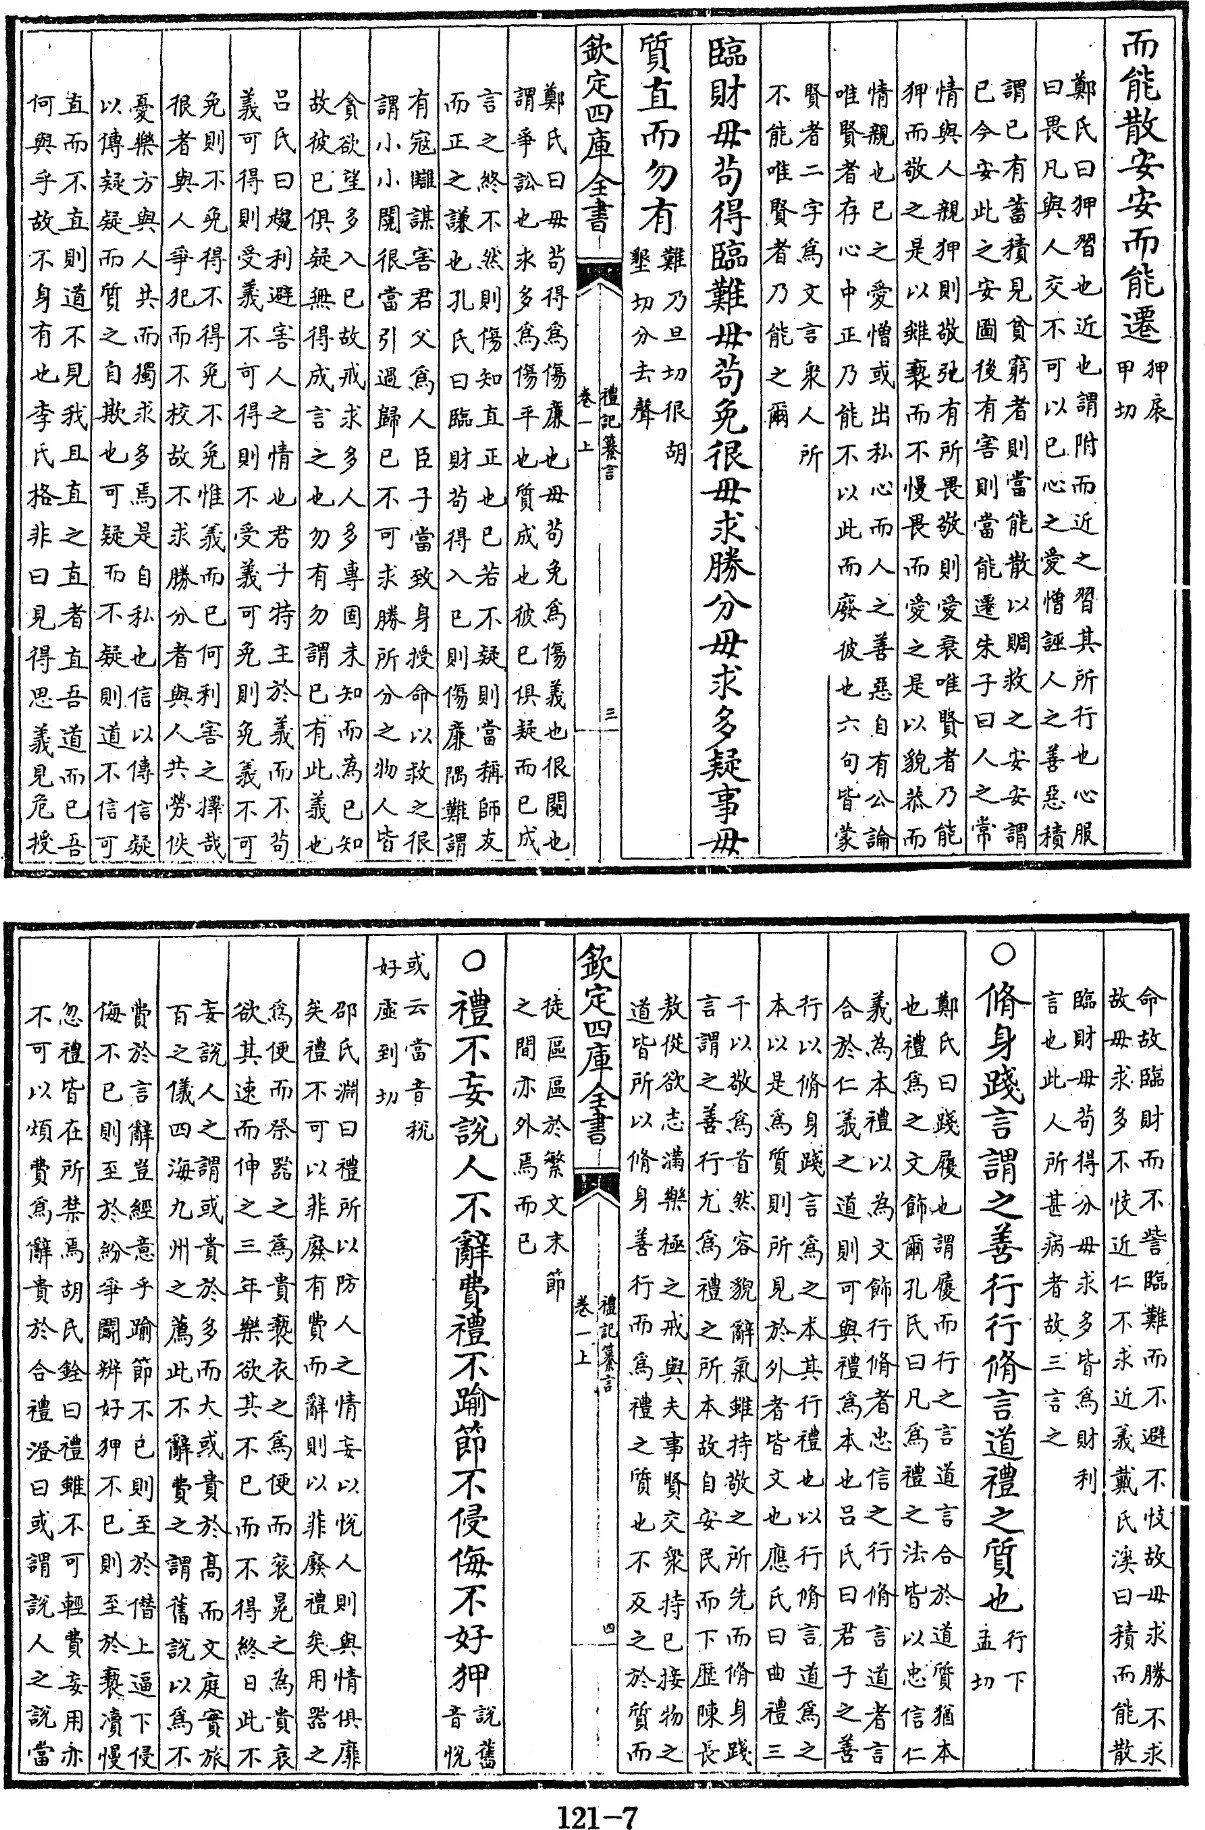 而能散安安而能遷 狎戾
甲切
鄭氏曰狎習也近也謂附而近之習其所行也心服
曰畏凡與人交不可以已心之愛憎誣人之善惡積
謂已有蓄積見貧窮者則當能散以賙救之安安謂
已今安此之安圖後有害則當能遷朱子曰人之常
情與人親狎則敬弛有所畏敬則愛衰唯賢者乃能
狎而敬之是以雖褻而不慢畏而愛之是以貌恭而
情親也已之愛憎或出私心而人之善惡自有公論
唯賢者存心中正乃能不以此而廢彼也六句皆蒙
賢者二字爲文言衆人所
不能唯賢者乃能之爾
臨財毋苟得臨難毋苟免很毋求勝分毋求多疑事毋
質直而勿有 難乃旦切很胡
墾切分去聲
欽定四庫全書
禮記纂言
卷一上
三
鄭氏曰毋苟得爲傷廉也毋苟免爲傷義也很鬩也
謂爭訟也求多爲傷平也質成也彼已俱疑而已成
言之終不然則傷知直正也已若不疑則當稱師友
而正之謙也孔氏曰臨財苟得入已則傷廉隅難謂
有寇讎謀害君父爲人臣子當致身授命以救之很
謂小小鬩很當引過歸已不可求勝所分之物人皆
貪欲望多入已故戒求多人多專固未知而為已知
故彼已俱疑無得成言之也勿有勿謂已有此義也
呂氏曰趨利避害人之情也君子特主於義而不苟
義可得則受義不可得則不受義可免則免義不可
免則不免得不得免不免惟義而已何利害之擇哉
很者與人爭犯而不校故不求勝分者與人共勞佚
憂樂方與人共而獨求多焉是自私也信以傳信疑
以傳疑疑而質之自欺也可疑而不疑則道不信可
直而不直則道不見我且直之直者直吾道而已吾
何與乎故不身有也李氏格非曰見得思義見危授
命故臨財而不訾臨難而不避不忮故毋求勝不求
故毋求多不忮近仁不求近義戴氏溪曰積而能散
臨財毋苟得分毋求多皆爲財利
言也此人所甚病者故三言之
○脩身踐言謂之善行行脩言道禮之質也 行下
孟切
鄭氏曰踐履也謂履而行之言道言合於道質猶本
也禮爲之文飾爾孔氏曰凡爲禮之法皆以忠信仁
義為本禮以為文飾行脩者忠信之行脩言道者言
合於仁義之道則可與禮爲本也呂氏曰君子之善
行以脩身踐言爲之本其行禮也以行脩言道爲之
本以是爲質則所見於外者皆文也應氏曰曲禮三
千以敬爲首然容貌辭氣雖持敬之所先而脩身踐
言謂之善行尤爲禮之所本故自安民而下歷陳長
敖從欲志滿樂極之戒與夫事賢交衆持已接物之
道皆所以脩身善行而爲禮之質也不反之於質而
徒區區於繁文末節
之間亦外焉而已
欽定四庫全書
禮記纂言
卷一上
四
○禮不妄說人不辭費禮不踰節不侵侮不好狎 說舊
音悅
或云當音稅
好虛到切
邵氏淵曰禮所以防人之情妄以悅人則與情俱靡
矣禮不可以非廢有費而辭則以非廢禮矣用器之
爲便而祭器之爲貴褻衣之爲便而衮冕之為貴哀
欲其速而伸之三年樂欲其不已而不得終日此不
妄說人之謂或貴於多而大或貴於高而文庭實旅
百之儀四海九州之薦此不辭費之謂舊說以爲不
費於言辭豈經意乎踰節不已則至於僭上逼下侵
侮不已則至於紛爭鬬辨好狎不已則至於褻瀆慢
忽禮皆在所禁焉胡氏銓曰禮雖不可輕費妄用亦
不可以煩費爲辭貴於合禮澄曰或謂說人之說當
121-7